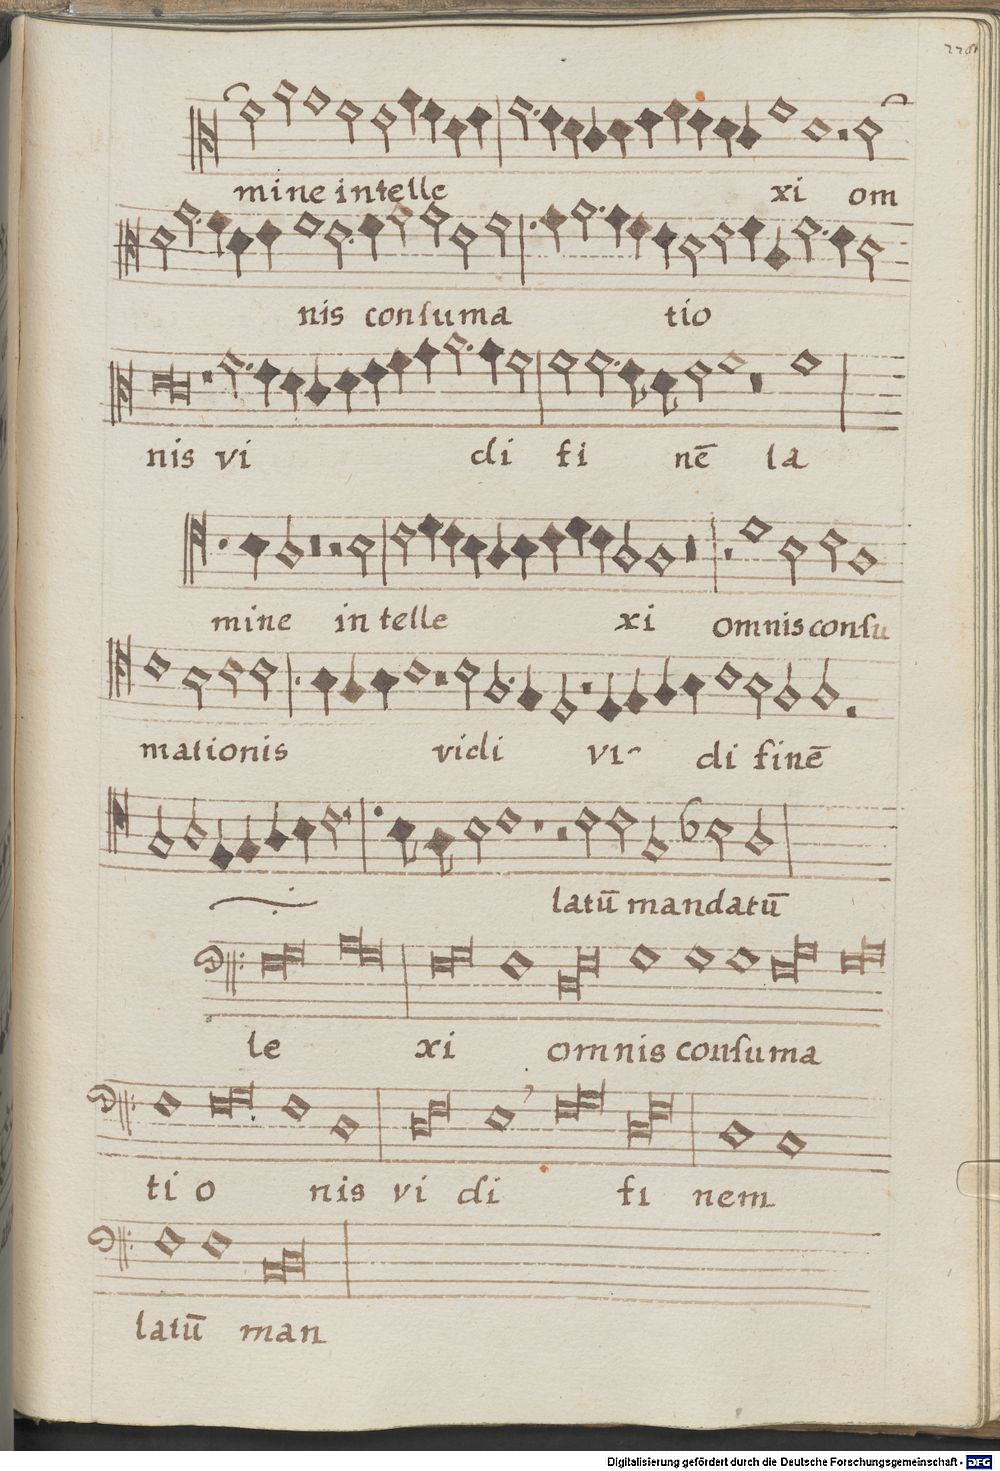 mine intelle xi om
nis conſuma tio
nis vi di fi nē la
mine in telle xi omnis conſu
mationis vidi vi di finē
latū mandatū
le xi omnis conſuma
ti o nis vi di fi nem
latū man
Digitalisierung gefördert durch die Deutsche Forschungsgemeinschaft - DFG